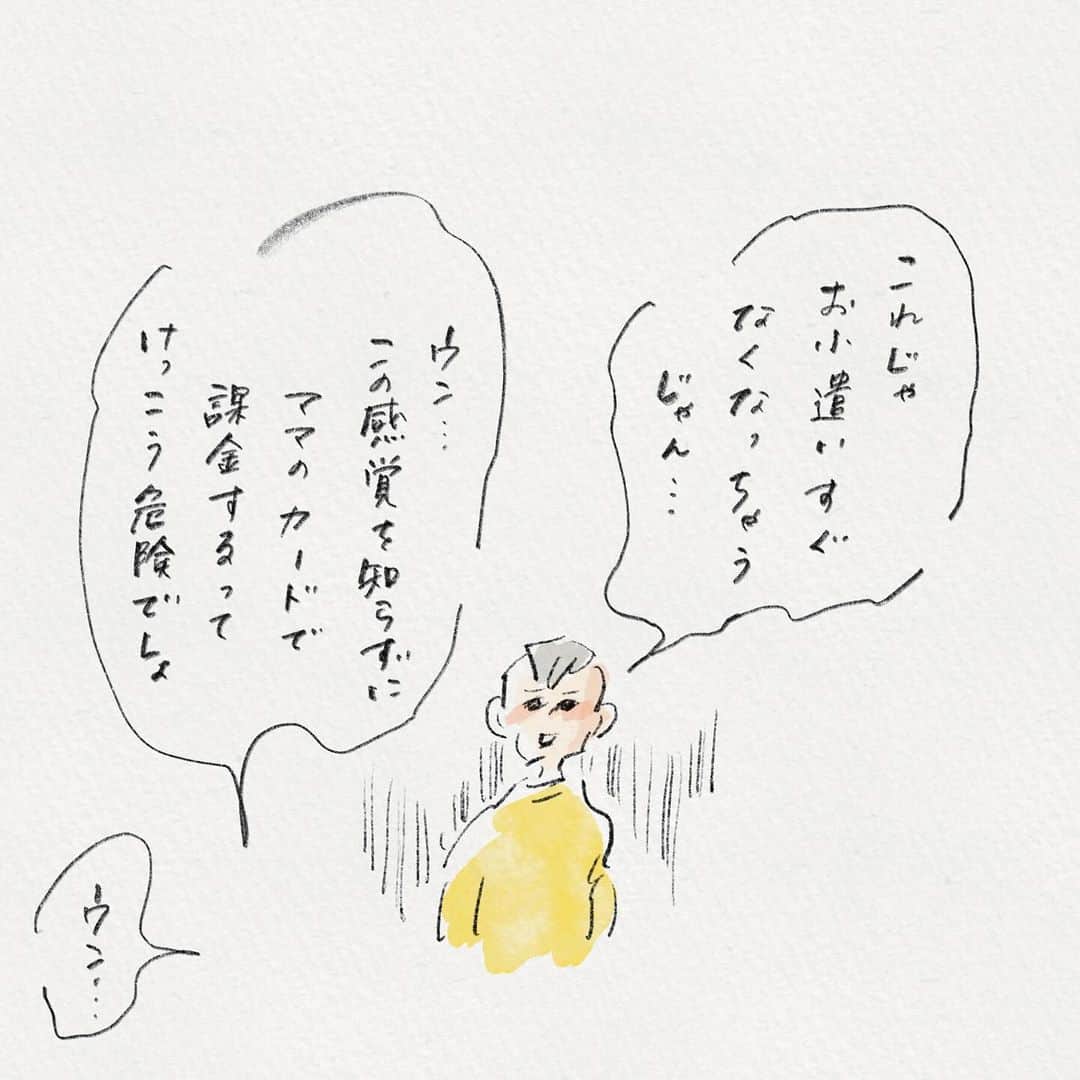 これじゃ
お小遣いすぐ
なくなっちゃう
じゃん…
ウン…
この感覚を知らずに
ママのカードで
課金するって
けっこう危険でしょ
ウン…